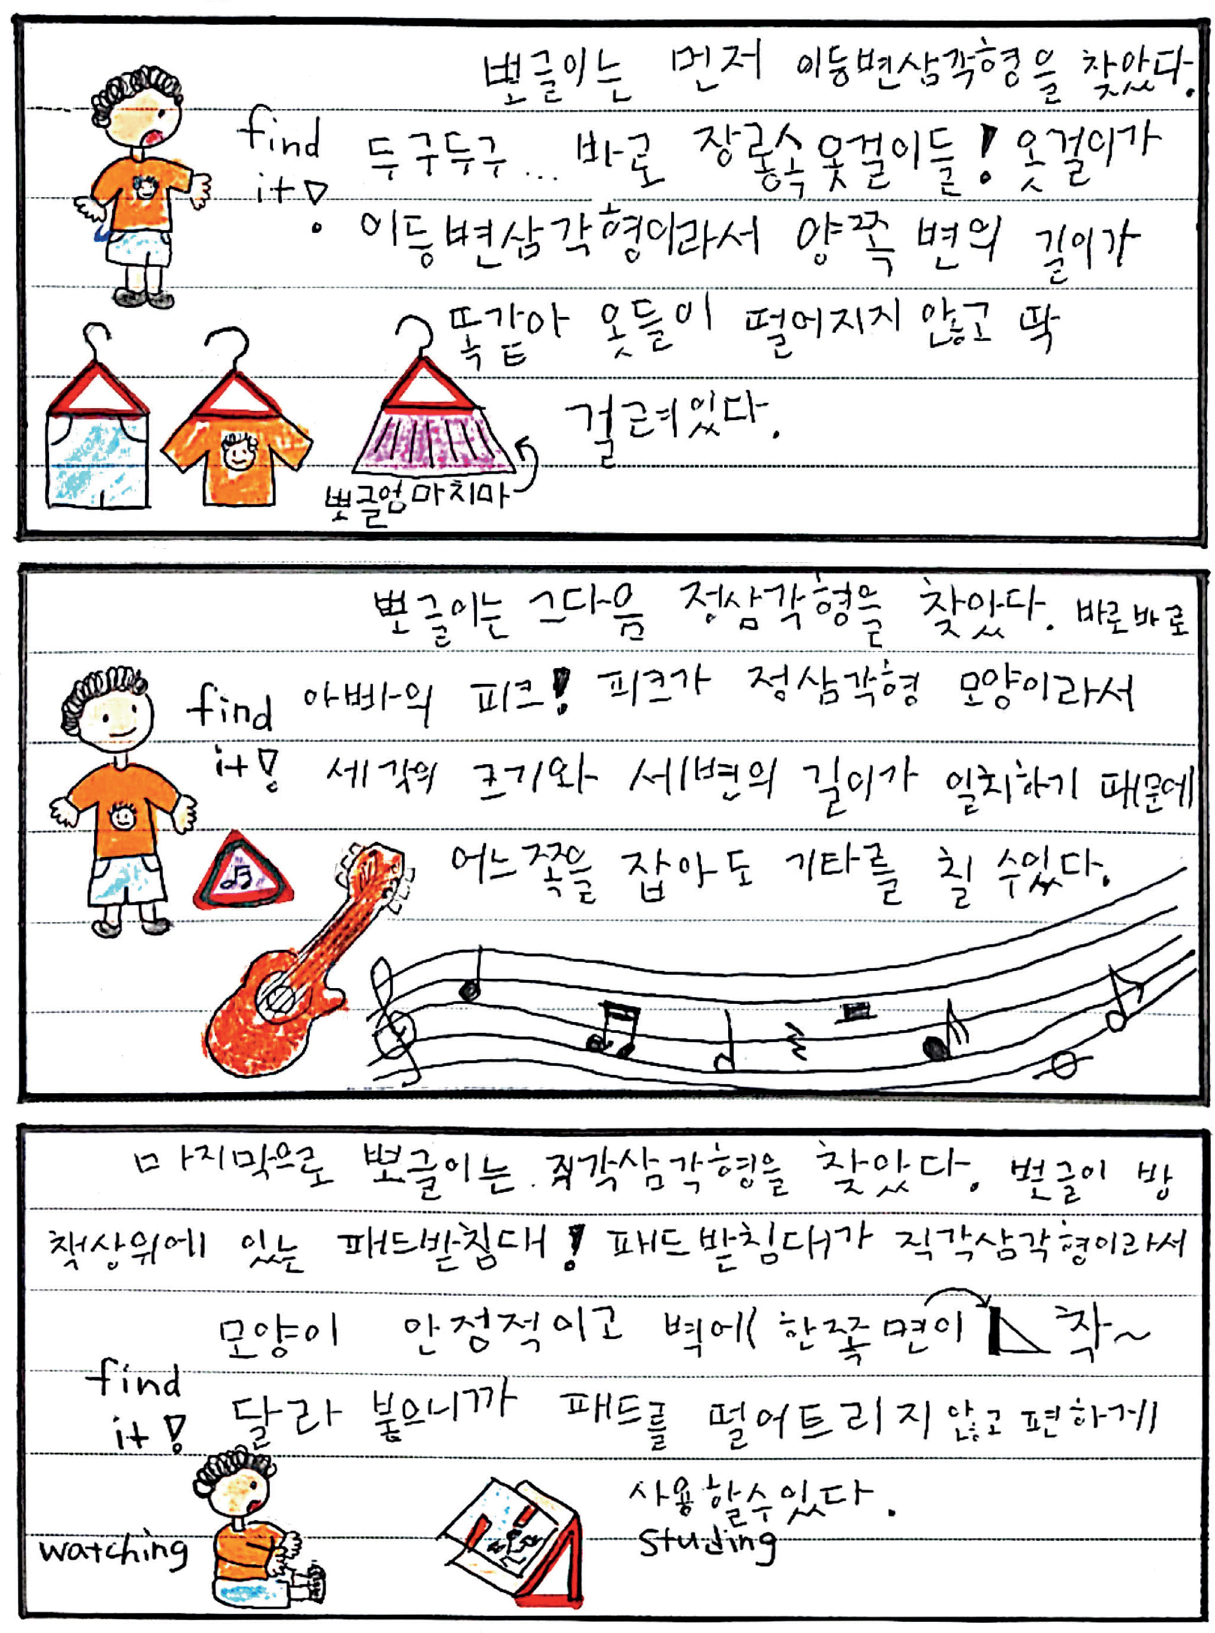 뽀글이는 먼저 이등변삼각형을 찾았다.
find 두구두구... 바로 장롱속 옷걸이들! 옷걸이가
it! 이등변삼각형이라서 양쪽 변의 길이가
똑같아 옷들이 떨어지지 않고 딱
걸려있다.
뽀글엄마치마
뽀글이는 그다음 정삼각형을 찾았다. 바로바로
find 아빠의 피크! 피크가 정삼각형 모양이라서
it! 세각의 크기와 세변의 길이가 일치하기 때문에
어느쪽을 잡아도 기타를 칠 수있다.
마지막으로 뽀글이는 직각삼각형을 찾았다. 뽀글이 방
책상위에 있는 패드받침대! 패드받침대가 직각삼각형이라서
모양이 안정적이고 벽에 한쪽면이 착~
find
it! 달라 붙으니까 패드를 떨어트리지 않고 편하게
사용할수있다.
watching
studing